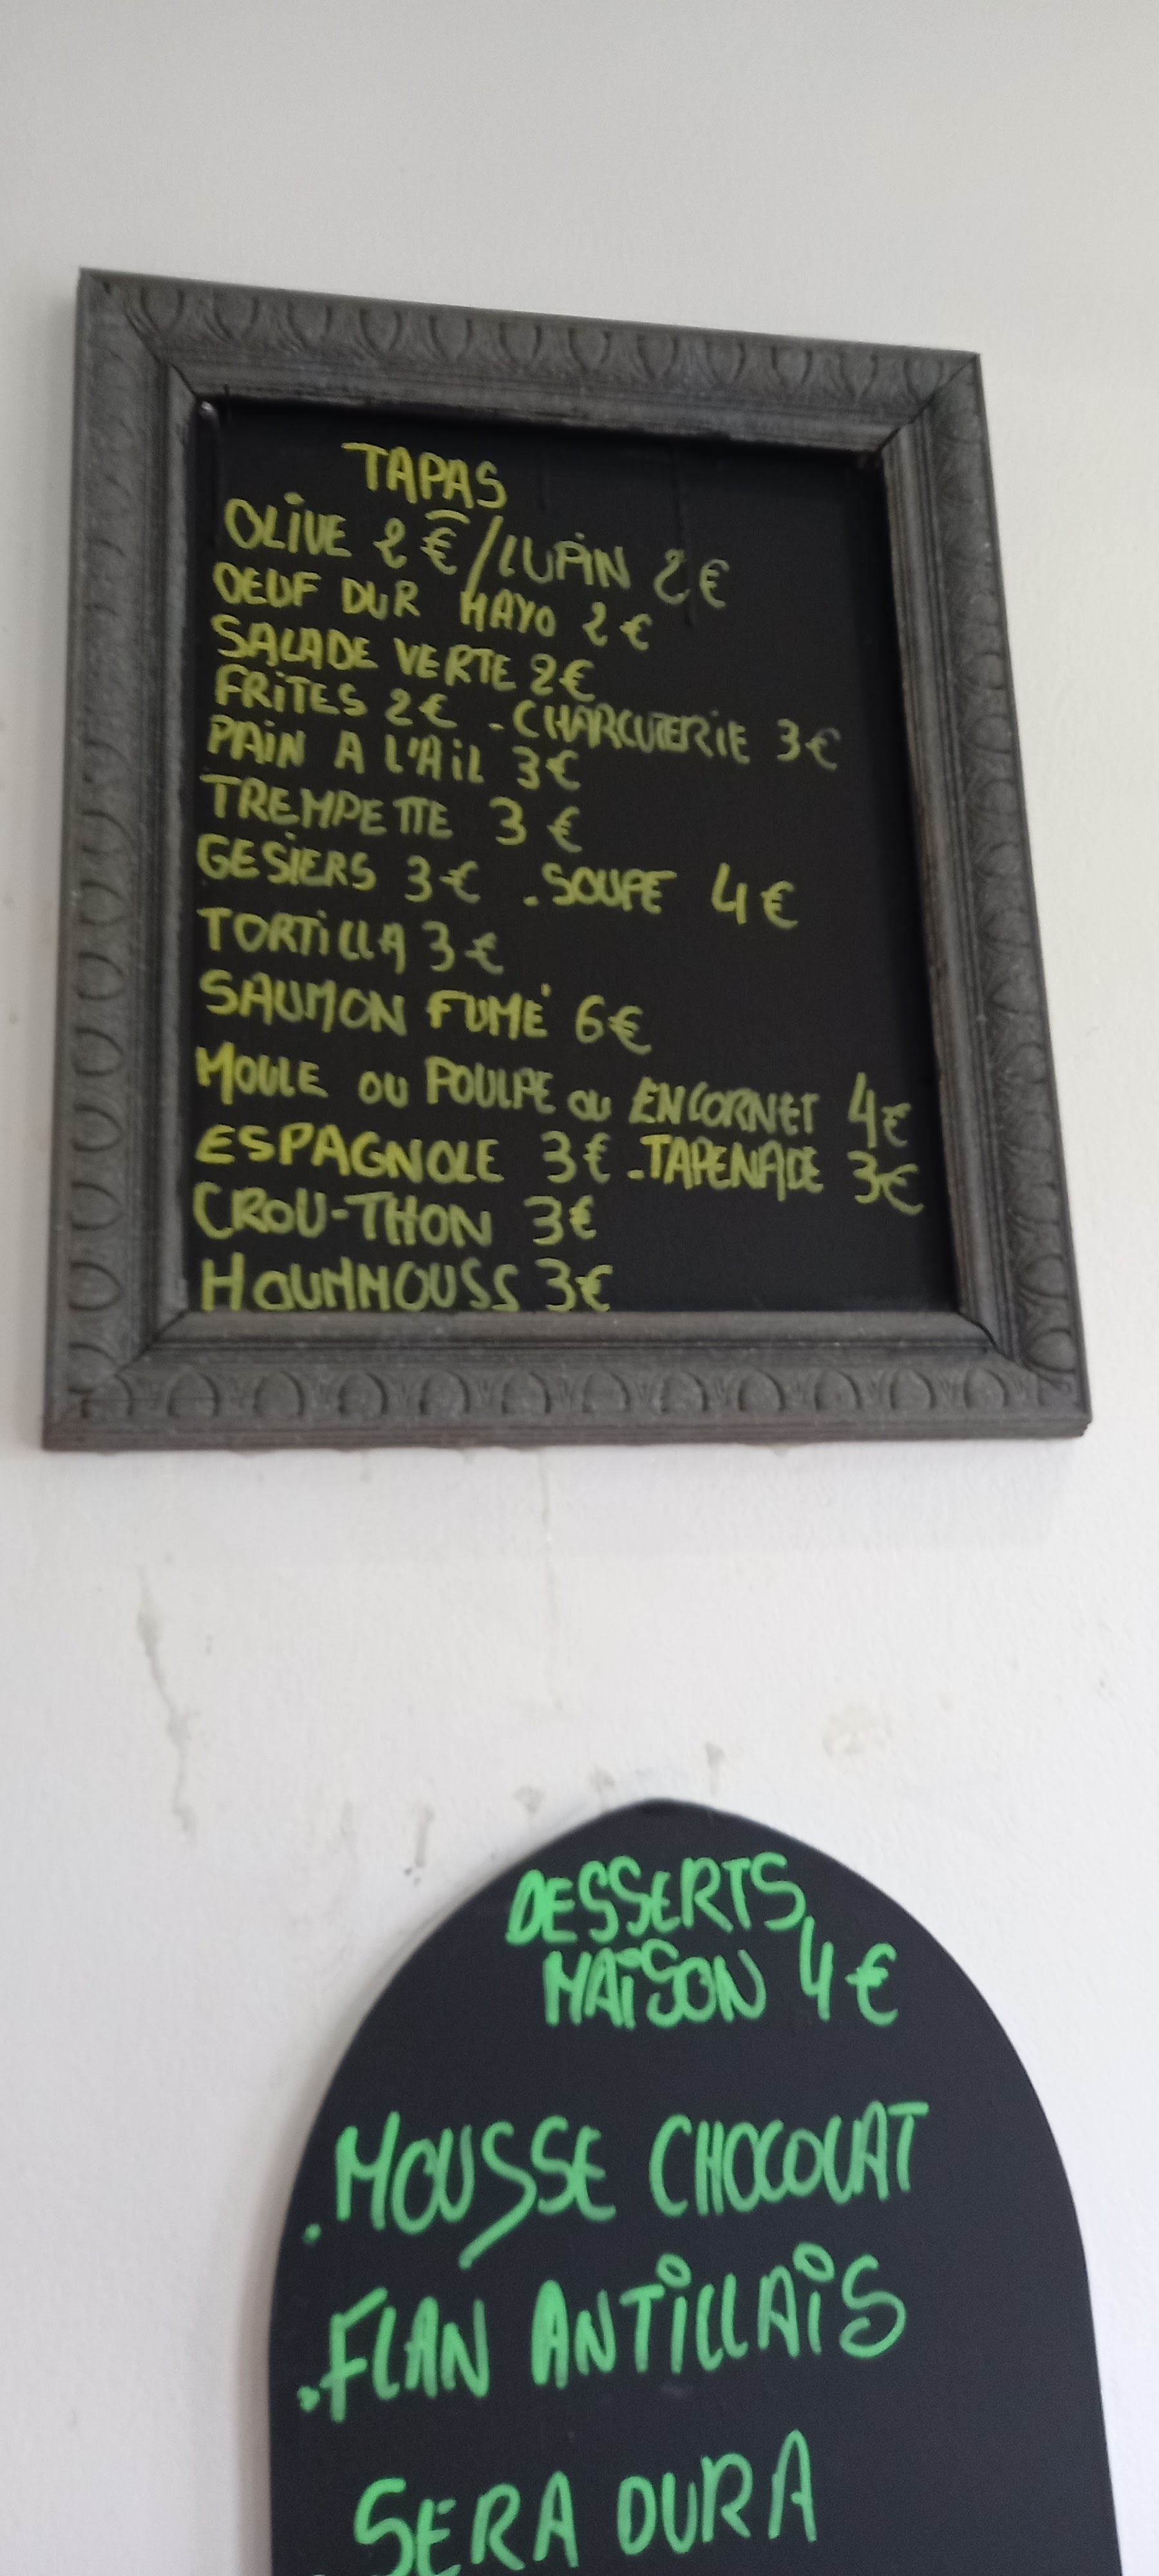 TAPAS
OLiVE 2€/LUPiN 2€
OEUF DUR MAYO 2€
SALADE VERTE 2€
FRiTES 2€ - CHARCUTERiE 3€
PAiN A L'AiL 3€
TREMPETTE 3€
GESiERS 3€ - SOUPE 4€
TORTiLLA 3€
SAUMON FUMÉ 6€
MOULE OU POULPE OU ENCORNET 4€
ESPAGNOLE 3€ - TAPENADE 3€
CROU-THON 3€
HOUMMOUSS 3€
DESSERTS
MAiSON 4€
. MOUSSE CHOCOLAT
. FLAN ANTiLLAiS
. SERA DURA